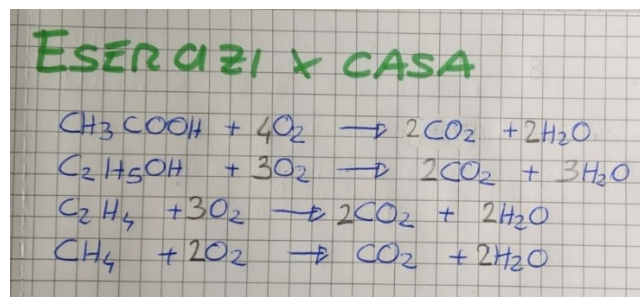 ESERCIZI X CASA
CH3COOH + 4O2 → 2CO2 + 2H2O
C2H5OH + 3O2 → 2CO2 + 3H2O
C2H4 + 3O2 → 2CO2 + 2H2O
CH4 + 2O2 → CO2 + 2H2O